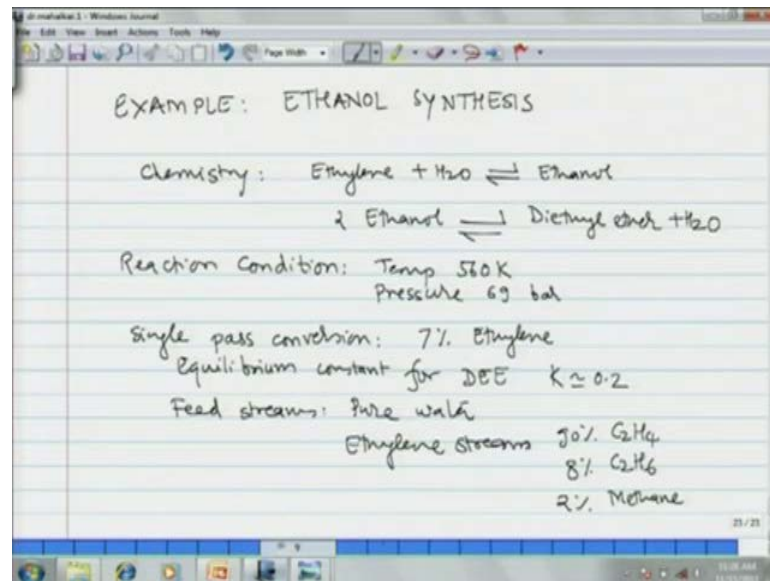 dr.mahalkar.1 - Windows Journal
File Edit View Insert Actions Tools Help
Page Width
EXAMPLE: ETHANOL SYNTHESIS
Chemistry: Ethylene + H2O ⇌ Ethanol
2 Ethanol ⇌ Diethyl ether + H2O
Reaction Condition: Temp 560 K
Pressure 69 bar
Single pass conversion: 7% Ethylene
Equilibrium constant for DEE K ≃ 0.2
Feed streams: Pure water
Ethylene streams 90% C2H4
8% C2H6
2% Methane
23/23
9